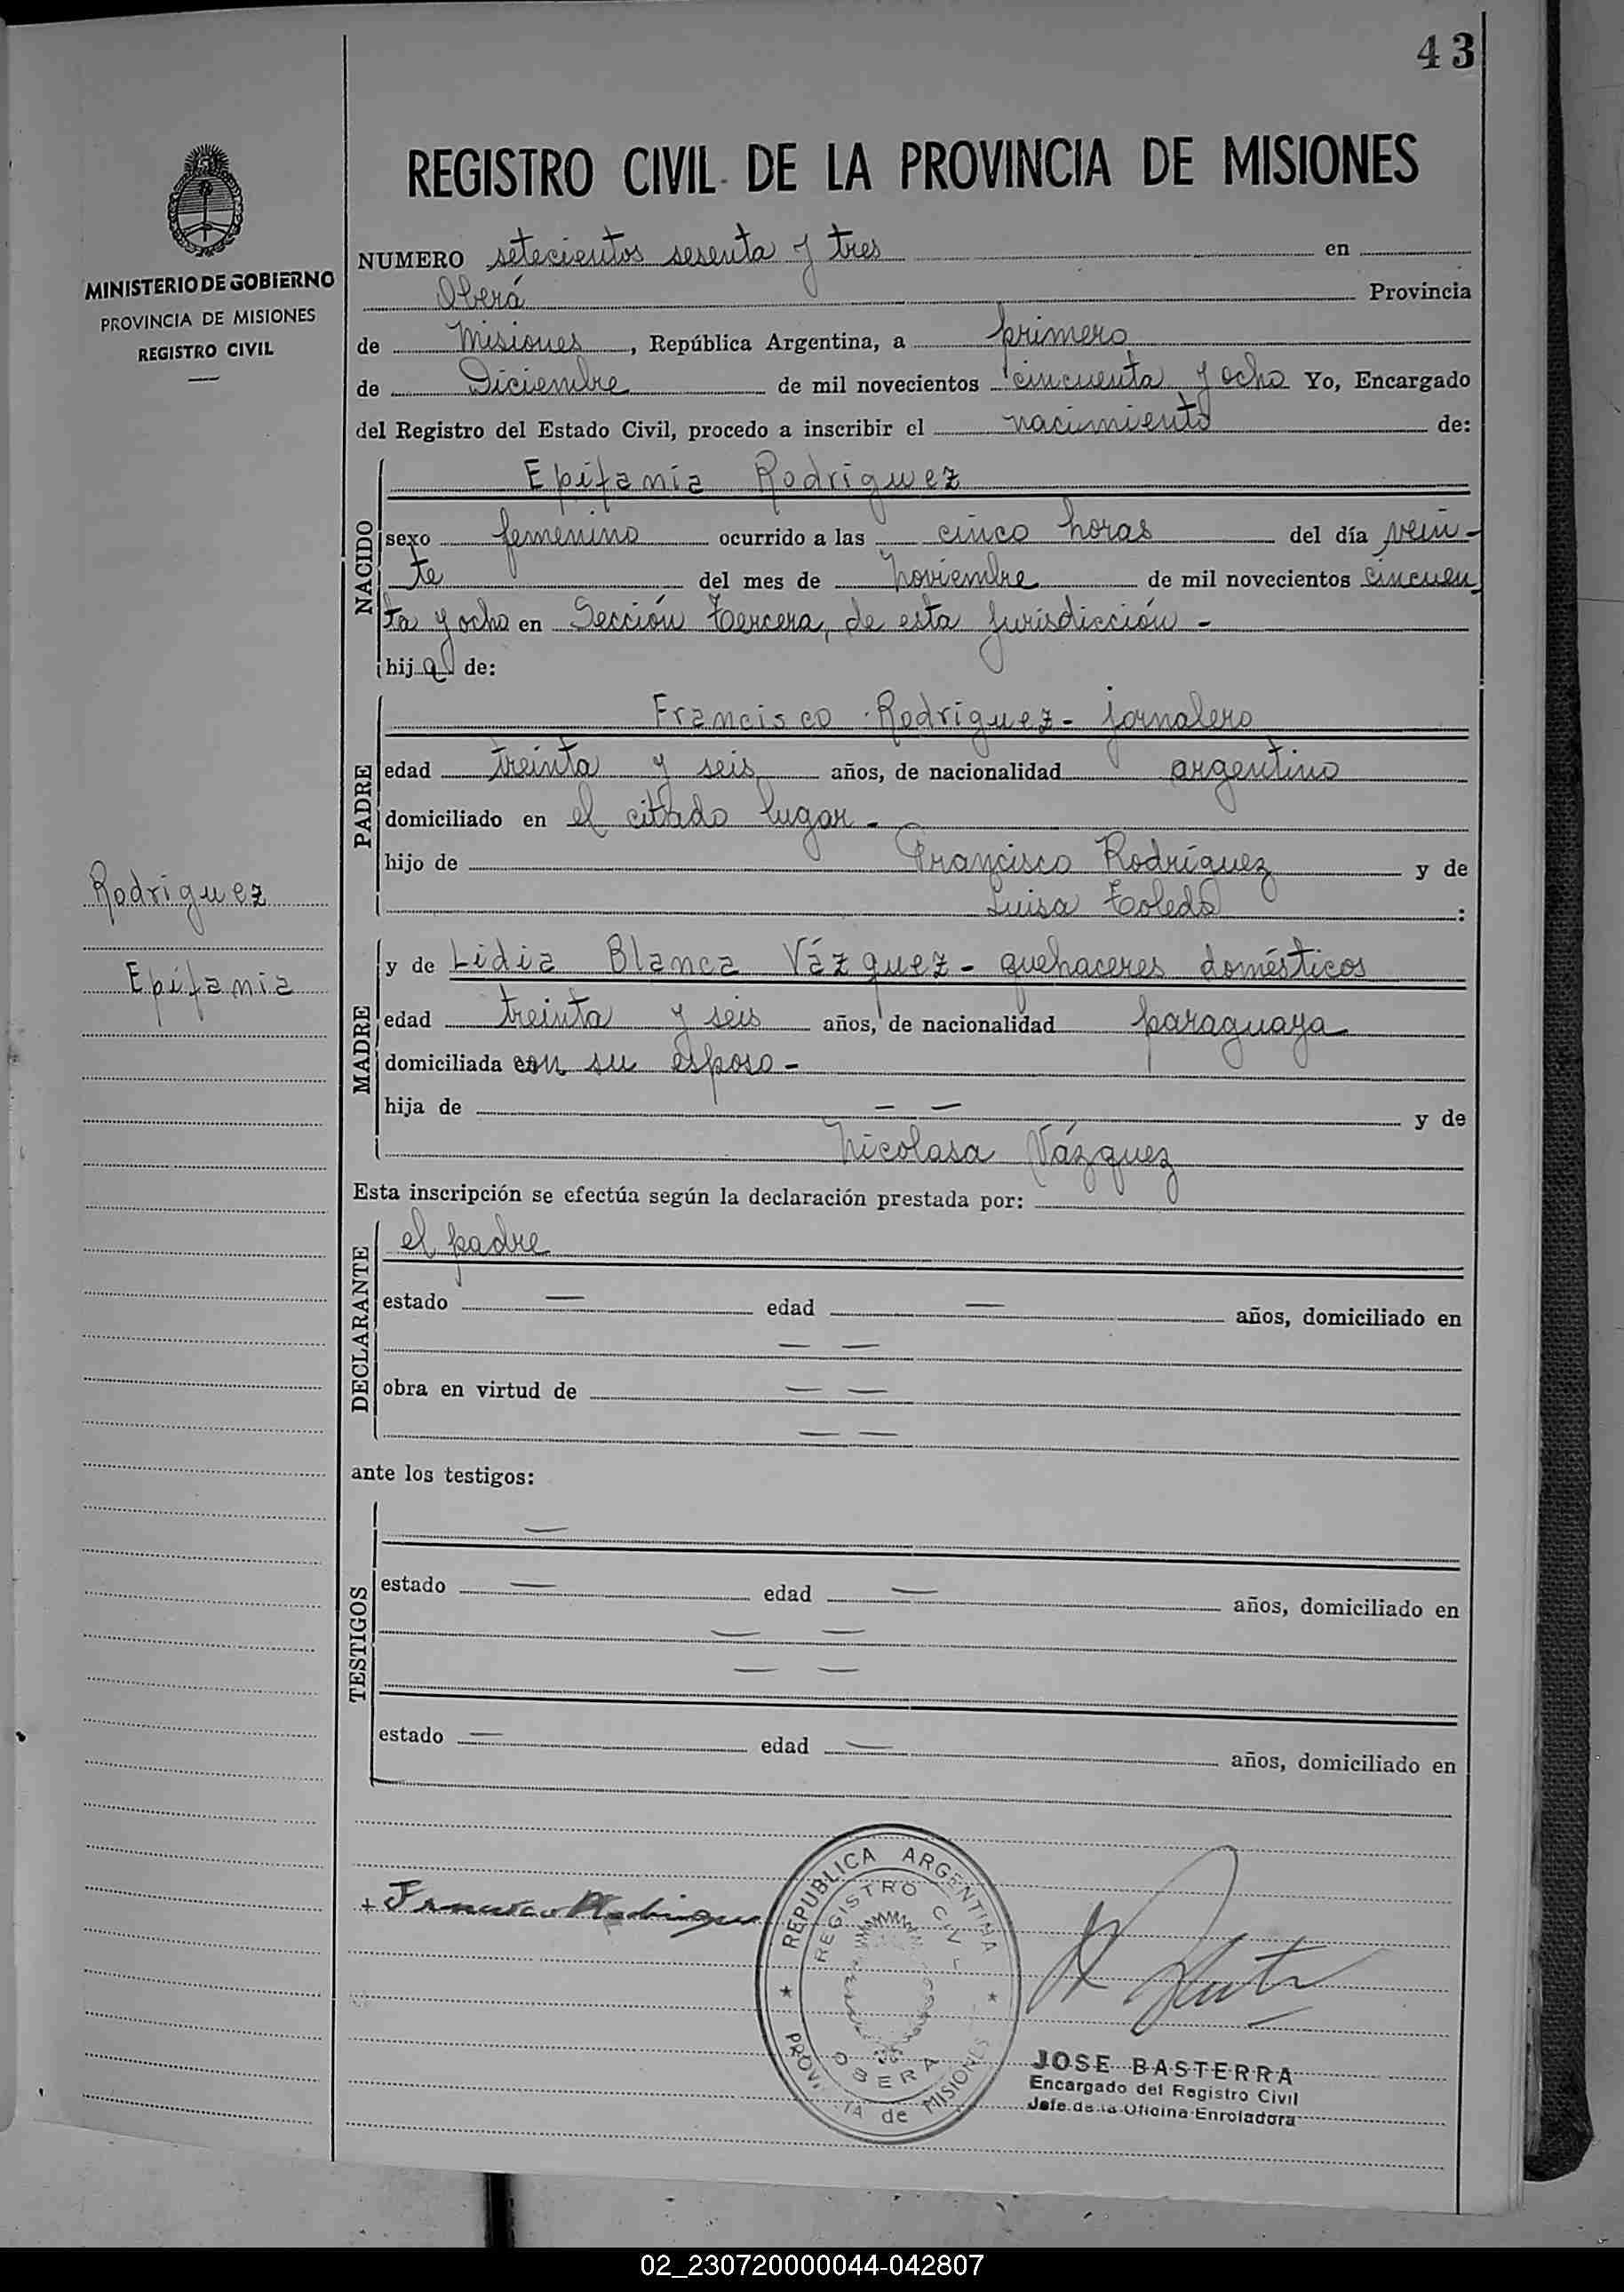 43
REGISTRO CIVIL DE LA PROVINCIA DE MISIONES
MINISTERIO DE GOBIERNO
PROVINCIA DE MISIONES
REGISTRO CIVIL
NUMERO setecientos sesenta y tres en
Oberá Provincia
de Misiones, República Argentina, a primero
de Diciembre de mil novecientos cincuenta y ocho Yo, Encargado
del Registro del Estado Civil, procedo a inscribir el nacimiento de:
NACIDO
Epifania Rodriguez
sexo femenino ocurrido a las cinco horas del día vein-
te del mes de Noviembre de mil novecientos cincuen
ta y ocho en Sección Tercera, de esta Jurisdicción -
hija de:
PADRE
Francisco Rodriguez - jornalero
edad treinta y seis años, de nacionalidad argentino
domiciliado en el citado lugar -
hijo de Francisco Rodríguez y de
Luisa Toledo :
Rodriguez
Epifania
MADRE
y de Lidia Blanca Vázquez - quehaceres domésticos
edad treinta y seis años, de nacionalidad paraguaya
domiciliada con su esposo -
hija de — — y de
Nicolasa Vázquez
Esta inscripción se efectúa según la declaración prestada por:
DECLARANTE
el padre
estado — edad — años, domiciliado en
— —
obra en virtud de — —
— —
ante los testigos:
TESTIGOS
—
estado — edad — años, domiciliado en
— —
— —
estado — edad — años, domiciliado en
+ Francisco Rodrigue
REPUBLICA ARGENTINA
REGISTRO CIVIL
OBERA
PROVINCIA de MISIONES
JOSE BASTERRA
Encargado del Registro Civil
Jefe de la Oficina Enroladora
02_230720000044-042807